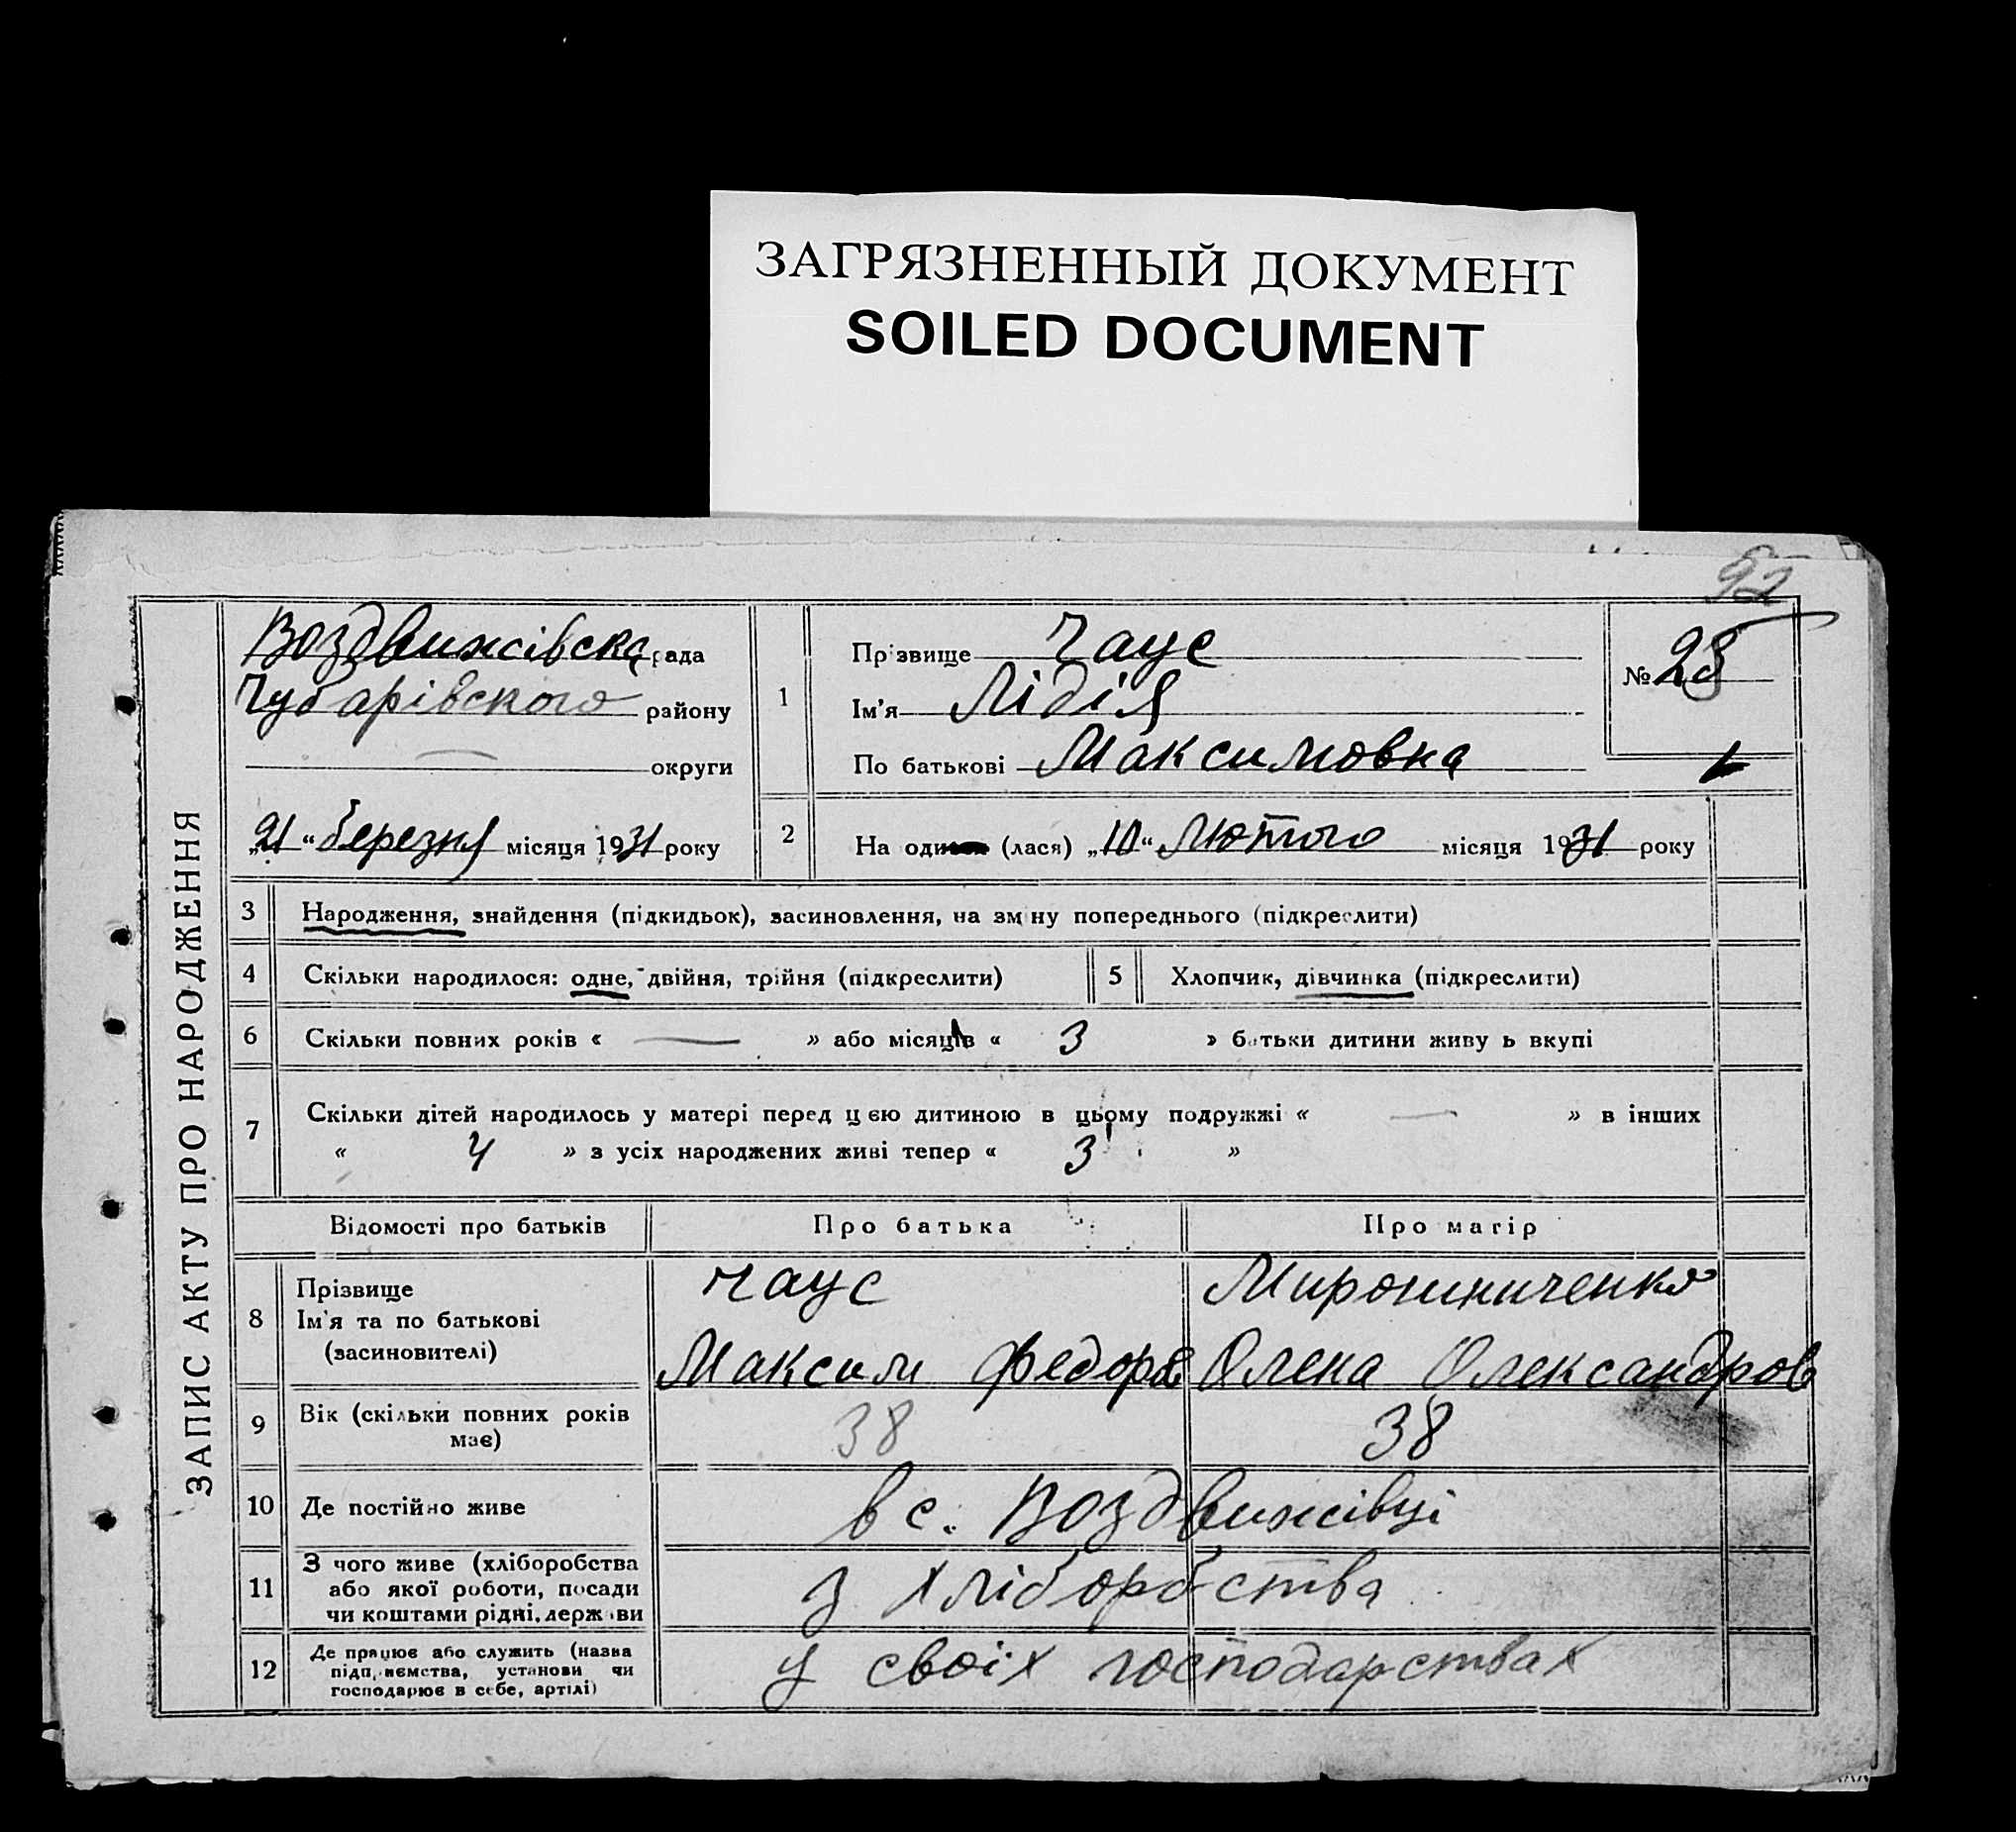 ЗАГРЯЗНЕННЫЙ ДОКУМЕНТ
SOILED DOCUMENT
92
ЗАПИС АКТУ ПРО НАРОДЖЕННЯ
Воздвижівська рада
Чубарівського району
— округи
„21“ березня місяця 1931 року
1
Прізвище Чаус
Ім'я Лідія
По батькові Максимовна
№ 23
2
На один (лася) „10“ Лютого місяця 1931 року
3 Народження, знайдення (підкидьок), засиновлення, на зміну попереднього (підкреслити)
4 Скільки народилося: одне, двійня, трійня (підкреслити)
5 Хлопчик, дівчинка (підкреслити)
6 Скільки повних років « — » або місяців « 3 » батьки дитини живуть вкупі
7 Скільки дітей народилось у матері перед цією дитиною в цьому подружжі « — » в інших
« 4 » з усіх народжених живі тепер « 3 »
Відомості про батьків Про батька Про матір
8 Прізвище Чаус Мирошниченко
Ім'я та по батькові
(засиновителі) Максим Федоров Олена Олександров
9 Вік (скільки повних років має) 38 38
10 Де постійно живе в с. Воздвижівці
11 З чого живе (хліборобства
або якої роботи, посади
чи коштами рідні, держави з хліборобства
12 Де працює або служить (назва
підприємства, установи чи
господарює в себе, артілі) у своїх господарствах